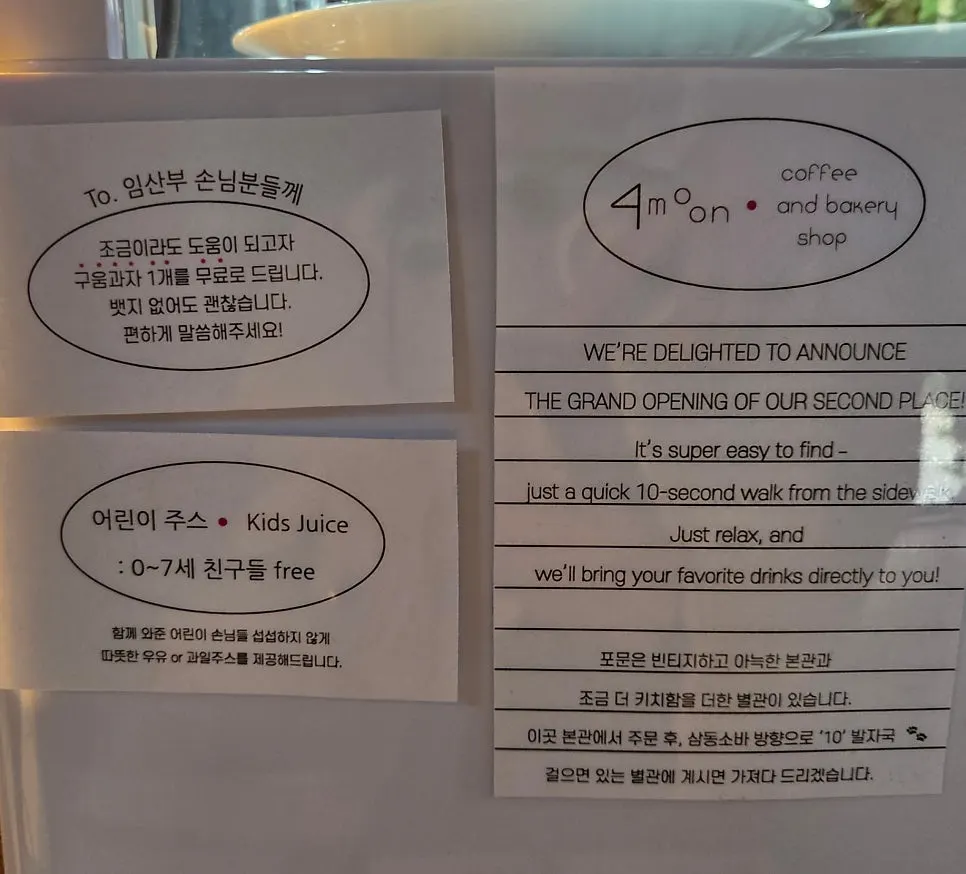 To. 임산부 손님분들께
조금이라도 도움이 되고자
구움과자 1개를 무료로 드립니다.
뱃지 없어도 괜찮습니다.
편하게 말씀해주세요!
어린이 주스 • Kids Juice
: 0~7세 친구들 free
함께 와준 어린이 손님들 섭섭하지 않게
따뜻한 우유 or 과일주스를 제공해드립니다.
4moon • coffee
and bakery
shop
WE'RE DELIGHTED TO ANNOUNCE
THE GRAND OPENING OF OUR SECOND PLACE!
It's super easy to find –
just a quick 10-second walk from the sidewalk.
Just relax, and
we'll bring your favorite drinks directly to you!
포문은 빈티지하고 아늑한 본관과
조금 더 키치함을 더한 별관이 있습니다.
이곳 본관에서 주문 후, 삼동소바 방향으로 '10' 발자국
걸으면 있는 별관에 계시면 가져다 드리겠습니다.